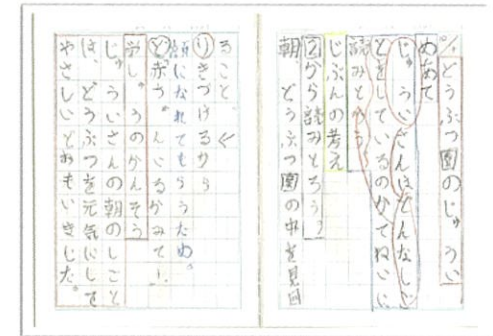 どうぶつ園のじゅうい
めあて
じゅういさんはどんなしご
とをしているのかてねいに
読みとろう
じぶんの考え
②から読みとろう。
朝、どうぶつ園の中を見回
ること、
きづけるから
顔になれてもらうため。
赤ちゃんいるかみて
学しゅうのかんそう
じゅういさんの朝のしごと
は、どうぶつを元気にして
やさしいとおもいました。